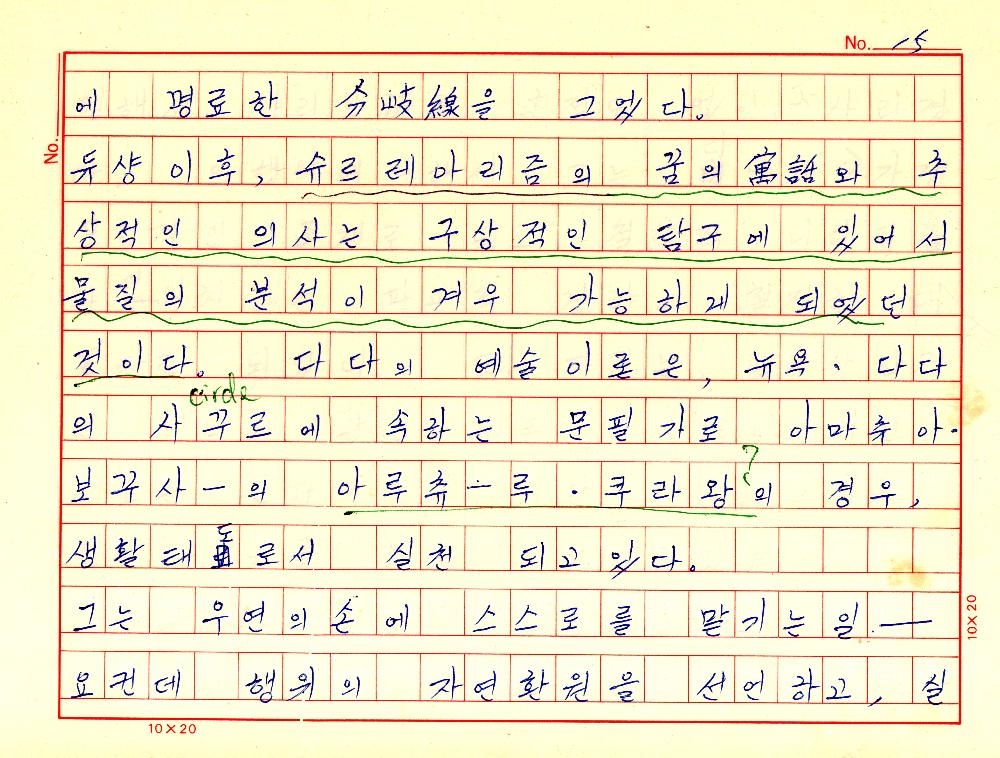 No. 15
No.
에 명료한 分岐線을 그었다.
듀샹 이후, 슈르레아리즘의 꿈의 寓話와 추
상적인 의사는 구상적인 탐구에 있어서
물질의 분석이 겨우 가능하게 되었던
것이다. 다다의 예술이론은, 뉴욕·다다
circle
의 사꾸르에 속하는 문필가로 아마츄아·
?
보꾸사ー의 아루츄ー루·쿠라왕의 경우,
생활태도로서 실천 되고있다.
그는 우연의손에 스스로를 맡기는일 ──
요컨데 행위의 자연환원을 선언하고, 실
10×20
10×20